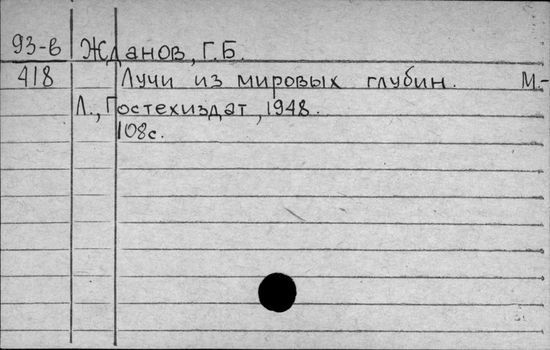 93-в Жданов, Г.Б.
418 Лучи из мировых глубин. М.-
Л., Гостехиздат, 1948.
108с.